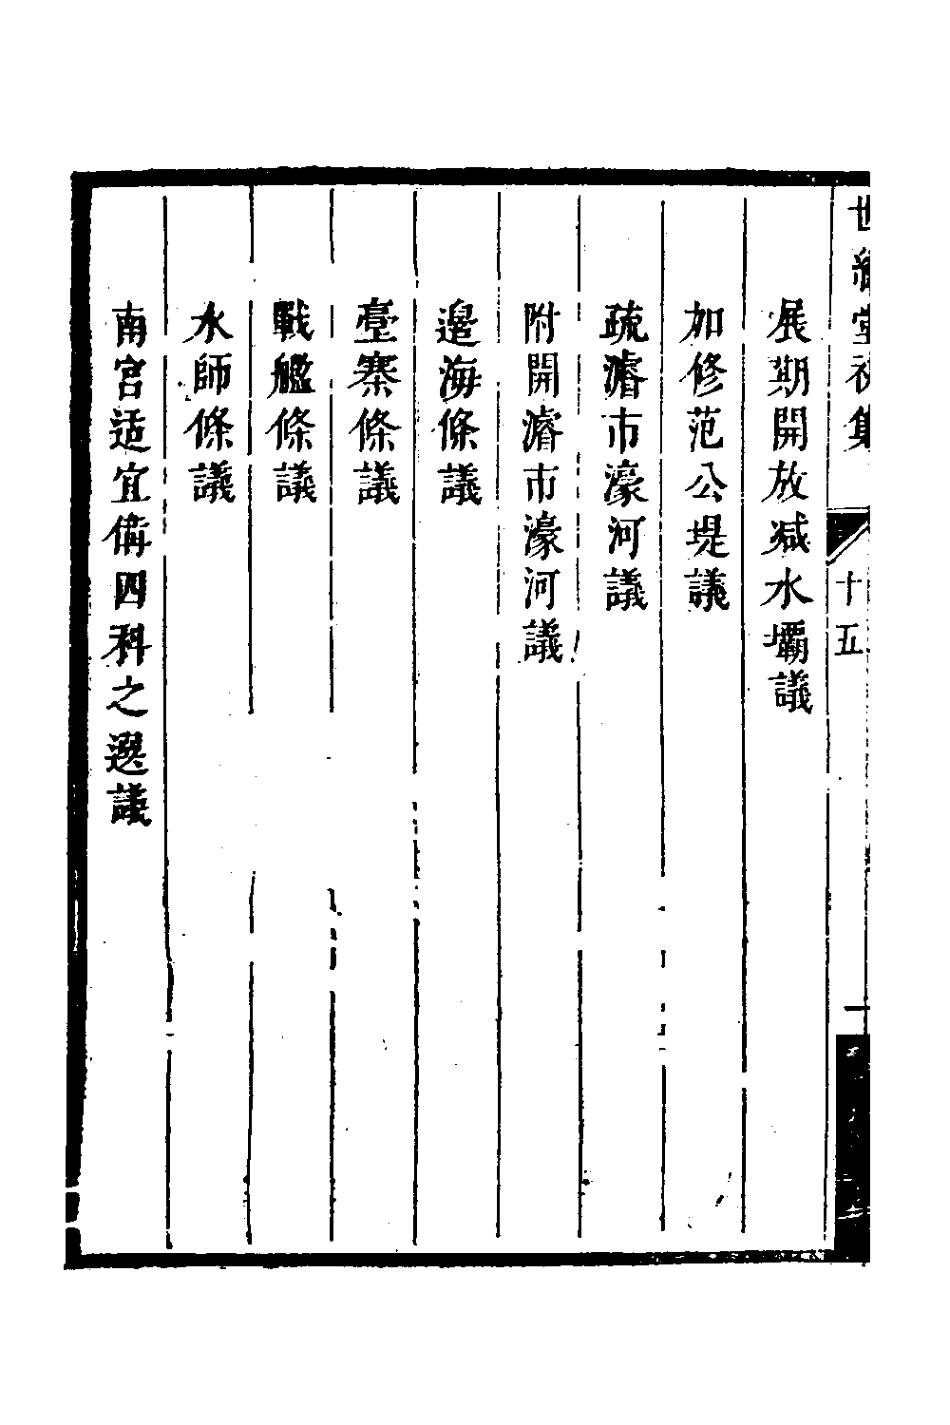 世經堂初集
十五
展期開放減水壩議
加修范公堤議
疏濬市濠河議
附開濬市濠河議
邊海條議
臺寨條議
戰艦條議
水師條議
南宮适宜備四科之選議